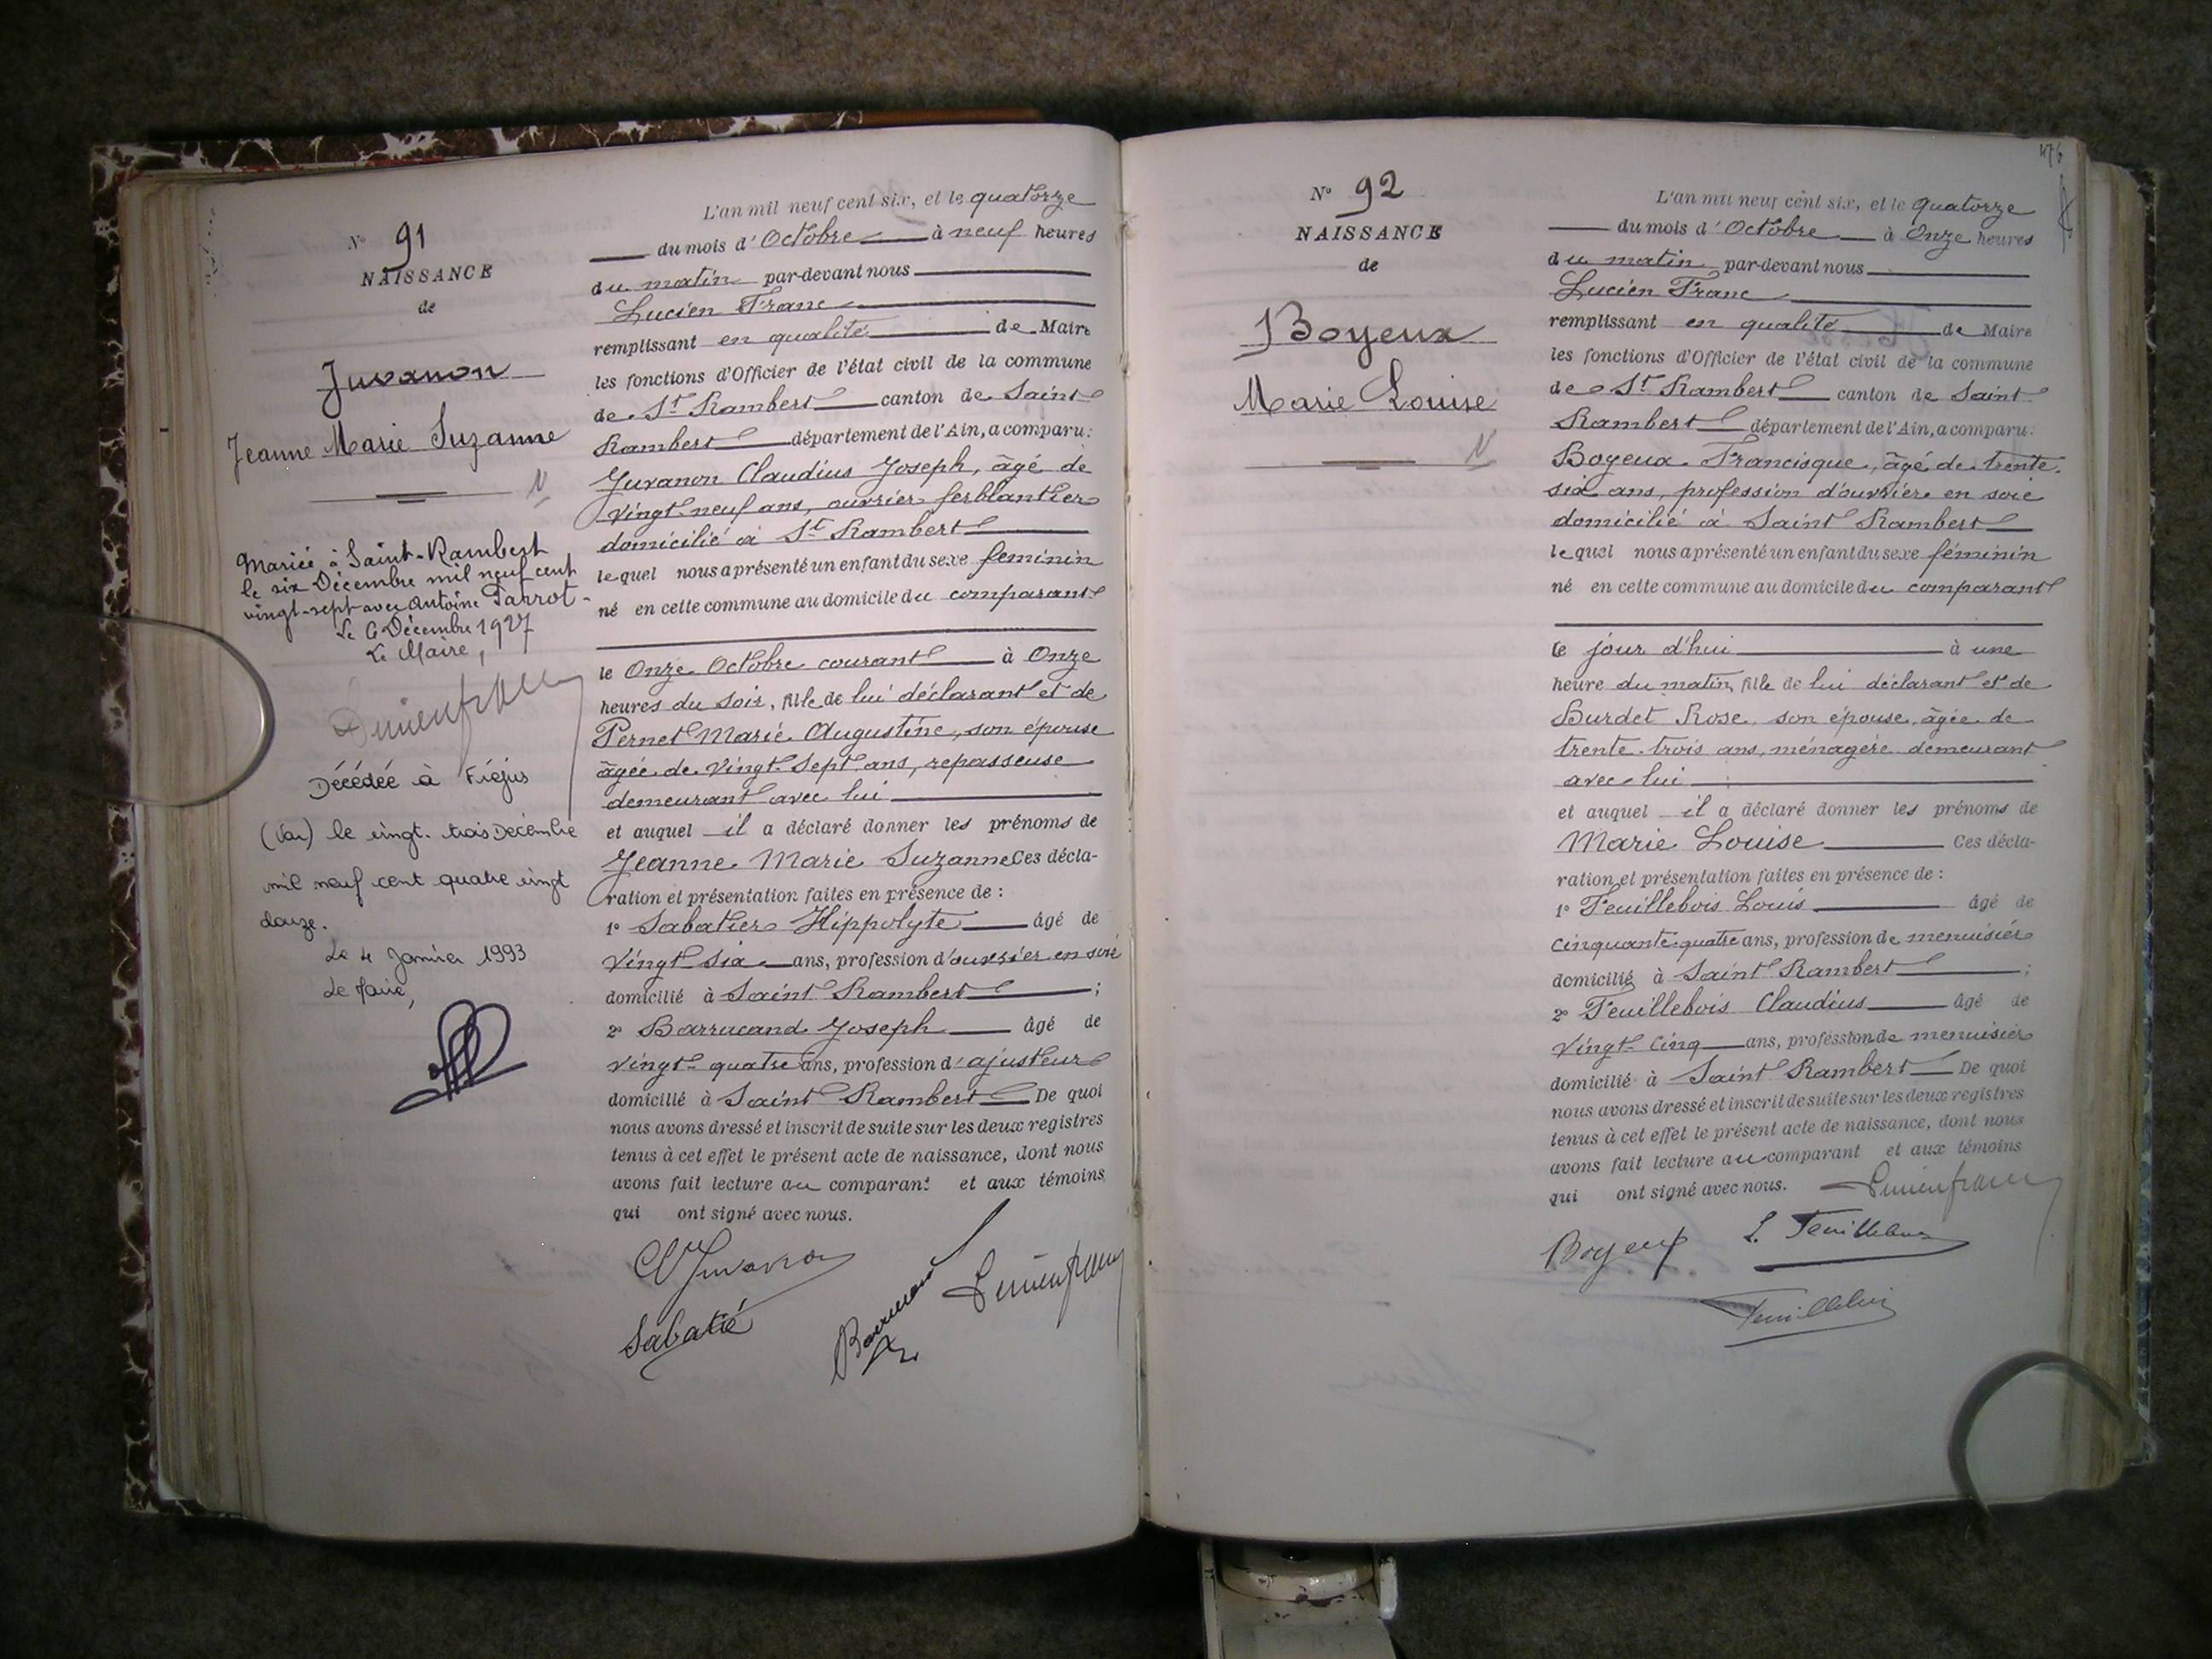 N° 91
NAISSANCE
de
Juvanon
Jeanne Marie Suzanne
Mariée à Saint-Rambert
le six Décembre mil neuf cent
vingt-sept avec Antoine Parrot-
Le 6 Décembre 1927
Le Maire,
Décédée à Fréjus
(Var) le vingt-trois Décembre
mil neuf cent quatre vingt
douze.
Le 4 Janvier 1993
Le Maire,
L'an mil neuf cent six, et le quatorze
du mois d'Octobre à neuf heures
du matin par-devant nous
Lucien Franc
remplissant en qualité de Maire
les fonctions d'Officier de l'état civil de la commune
de St Rambert canton de Saint
Rambert département de l'Ain, a comparu:
Juvanon Claudius Joseph, âgé de
vingt-neuf ans, ouvrier ferblantier
domicilié à St Rambert
lequel nous a présenté un enfant du sexe feminin
né en cette commune au domicile du comparant
le Onze Octobre courant à Onze
heures du soir, fille de lui déclarant et de
Pernet Marie Augustine, son épouse
âgée de vingt-sept ans, repasseuse
demeurant avec lui
et auquel il a déclaré donner les prénoms de
Jeanne Marie Suzanne Ces décla-
ration et présentation faites en présence de :
1° Sabatier Hippolyte âgé de
Vingt six ans, profession d'ouvrier en soie
domicilié à Saint Rambert ;
2° Barrucand Joseph âgé de
vingt-quatre ans, profession d'ajusteur
domicilié à Saint Rambert De quoi
nous avons dressé et inscrit de suite sur les deux registres
tenus à cet effet le présent acte de naissance, dont nous
avons fait lecture au comparant et aux témoins
qui ont signé avec nous.
Juvanon
Sabatié
Lucien franc
476
N° 92
NAISSANCE
de
Boyeux
Marie Louise
L'an mil neuf cent six, et le quatorze
du mois d'Octobre à Onze heures
du matin par-devant nous
Lucien Franc
remplissant en qualité de Maire
les fonctions d'Officier de l'état civil de la commune
de St Rambert canton de Saint
Rambert département de l'Ain, a comparu:
Boyeux Francisque, âgé de trente-
six ans, profession d'ouvrier en soie
domicilié à Saint Rambert
lequel nous a présenté un enfant du sexe féminin
né en cette commune au domicile du comparant
le jour d'hui à une
heure du matin, fille de lui déclarant et de
Burdet Rose, son épouse, âgée de
trente-trois ans, ménagère demeurant
avec lui
et auquel il a déclaré donner les prénoms de
Marie Louise Ces décla-
ration et présentation faites en présence de :
1° Feuillebois Louis âgé de
cinquante-quatre ans, profession de menuisier
domicilié à Saint Rambert ;
2° Feuillebois Claudius âgé de
Vingt-cinq ans, profession de menuisier
domicilié à Saint Rambert De quoi
nous avons dressé et inscrit de suite sur les deux registres
tenus à cet effet le présent acte de naissance, dont nous
avons fait lecture au comparant et aux témoins
qui ont signé avec nous. Lucien franc
Boyeux L. Feuillebois
Feuillebois